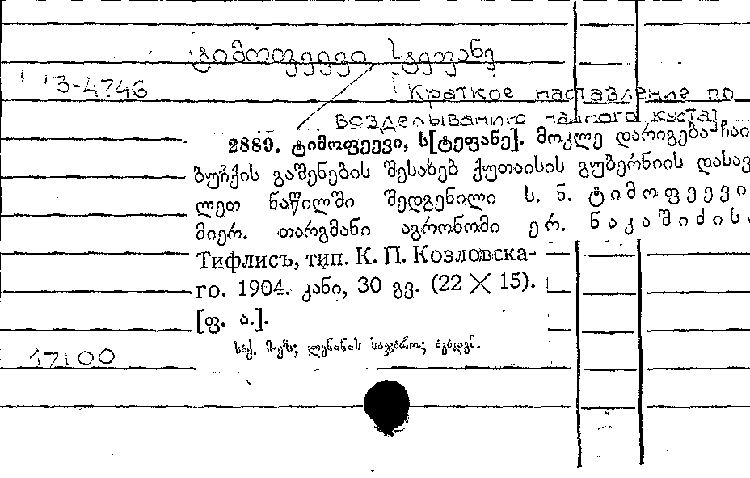 ტიმოფეევი სტეფანე
13-4746
Краткое наставление по
возделыванию чайного куста)
2889. ტიმოფეევი, ს[ტეფანე]. მოკლე დარიგება ჩაი
ბუჩქის გაშენების შესახებ ქუთაისის გუბერნიის დასავ
ლეთ ნაწილში შედგენილი ს. ნ. ტიმოფეევი
მიერ. თარგმანი აგრონომი ერ. ნაკაშიძის
Тифлисъ, тип. К. П. Козловска-
го. 1904. კანი, 30 გვ. (22 X 15).
[ფ. ა.].
17100